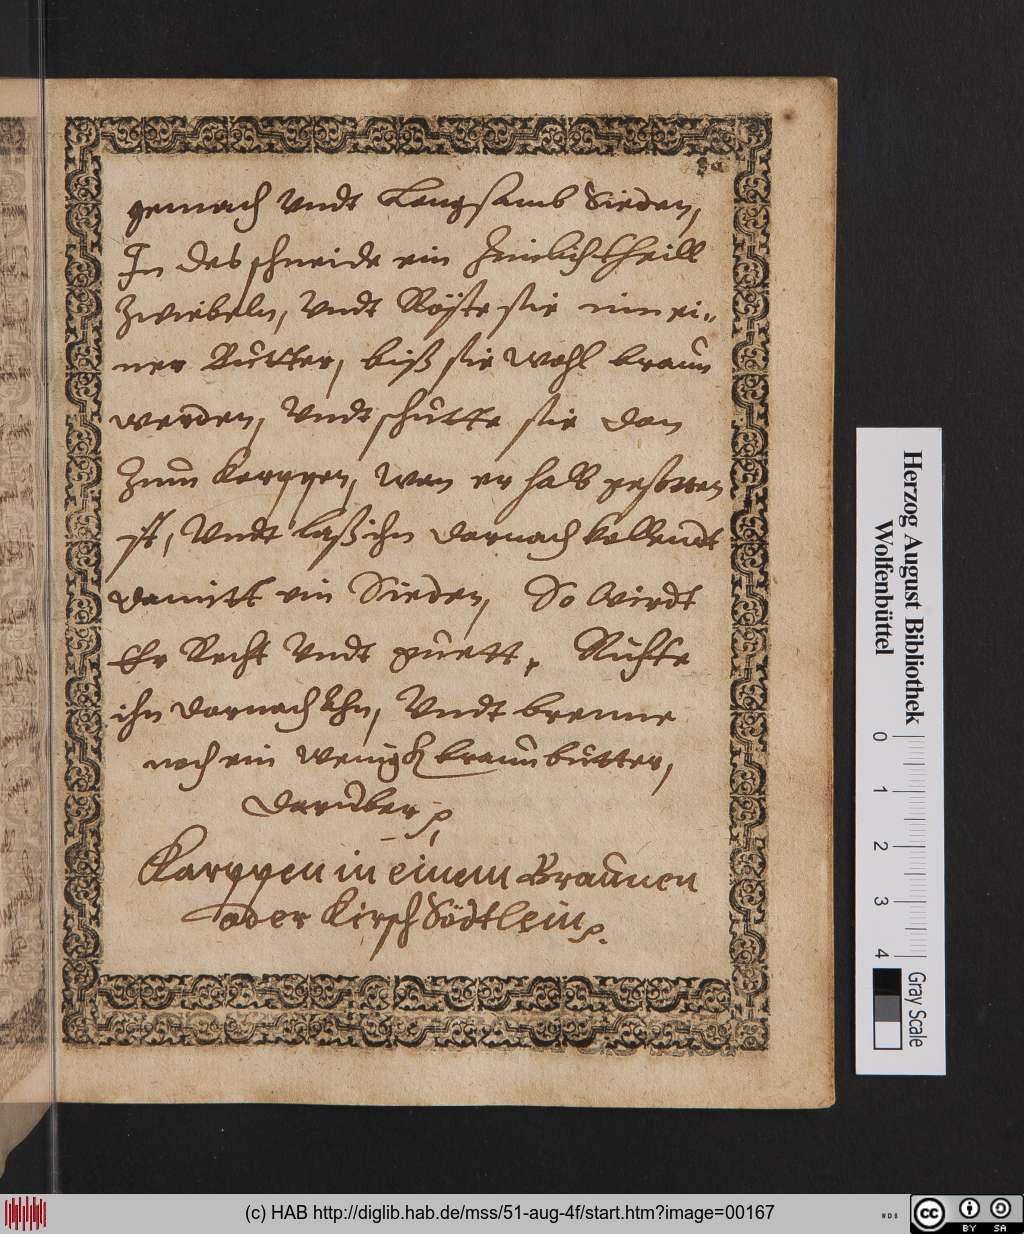 gemach Vndt Langsamb Sieden,
In des schneide ein Zimlich theill
Zwiebeln, Vndt Röste sie inn ei„
ner Butter, biß sie wohl braun
werden, Vndt schütte sie dan
Zum Karppen, wan er halb gesotten
ist, Vndt laß ihn darnach vollendt
damitt ein Sieden, So wirdt
Er Recht Vndt guett, Richte
ihn darnach Ahn, Vndt brenne
noch ein wenig braun butter,
darüber
Karppen in einem Braunen
oder Kirsch Södtlein
Herzog August Bibliothek
Wolfenbüttel
0 1 2 3 4
Gray Scale
(c) HAB http://diglib.hab.de/mss/51-aug-4f/start.htm?image=00167
WDB
cc BY SA